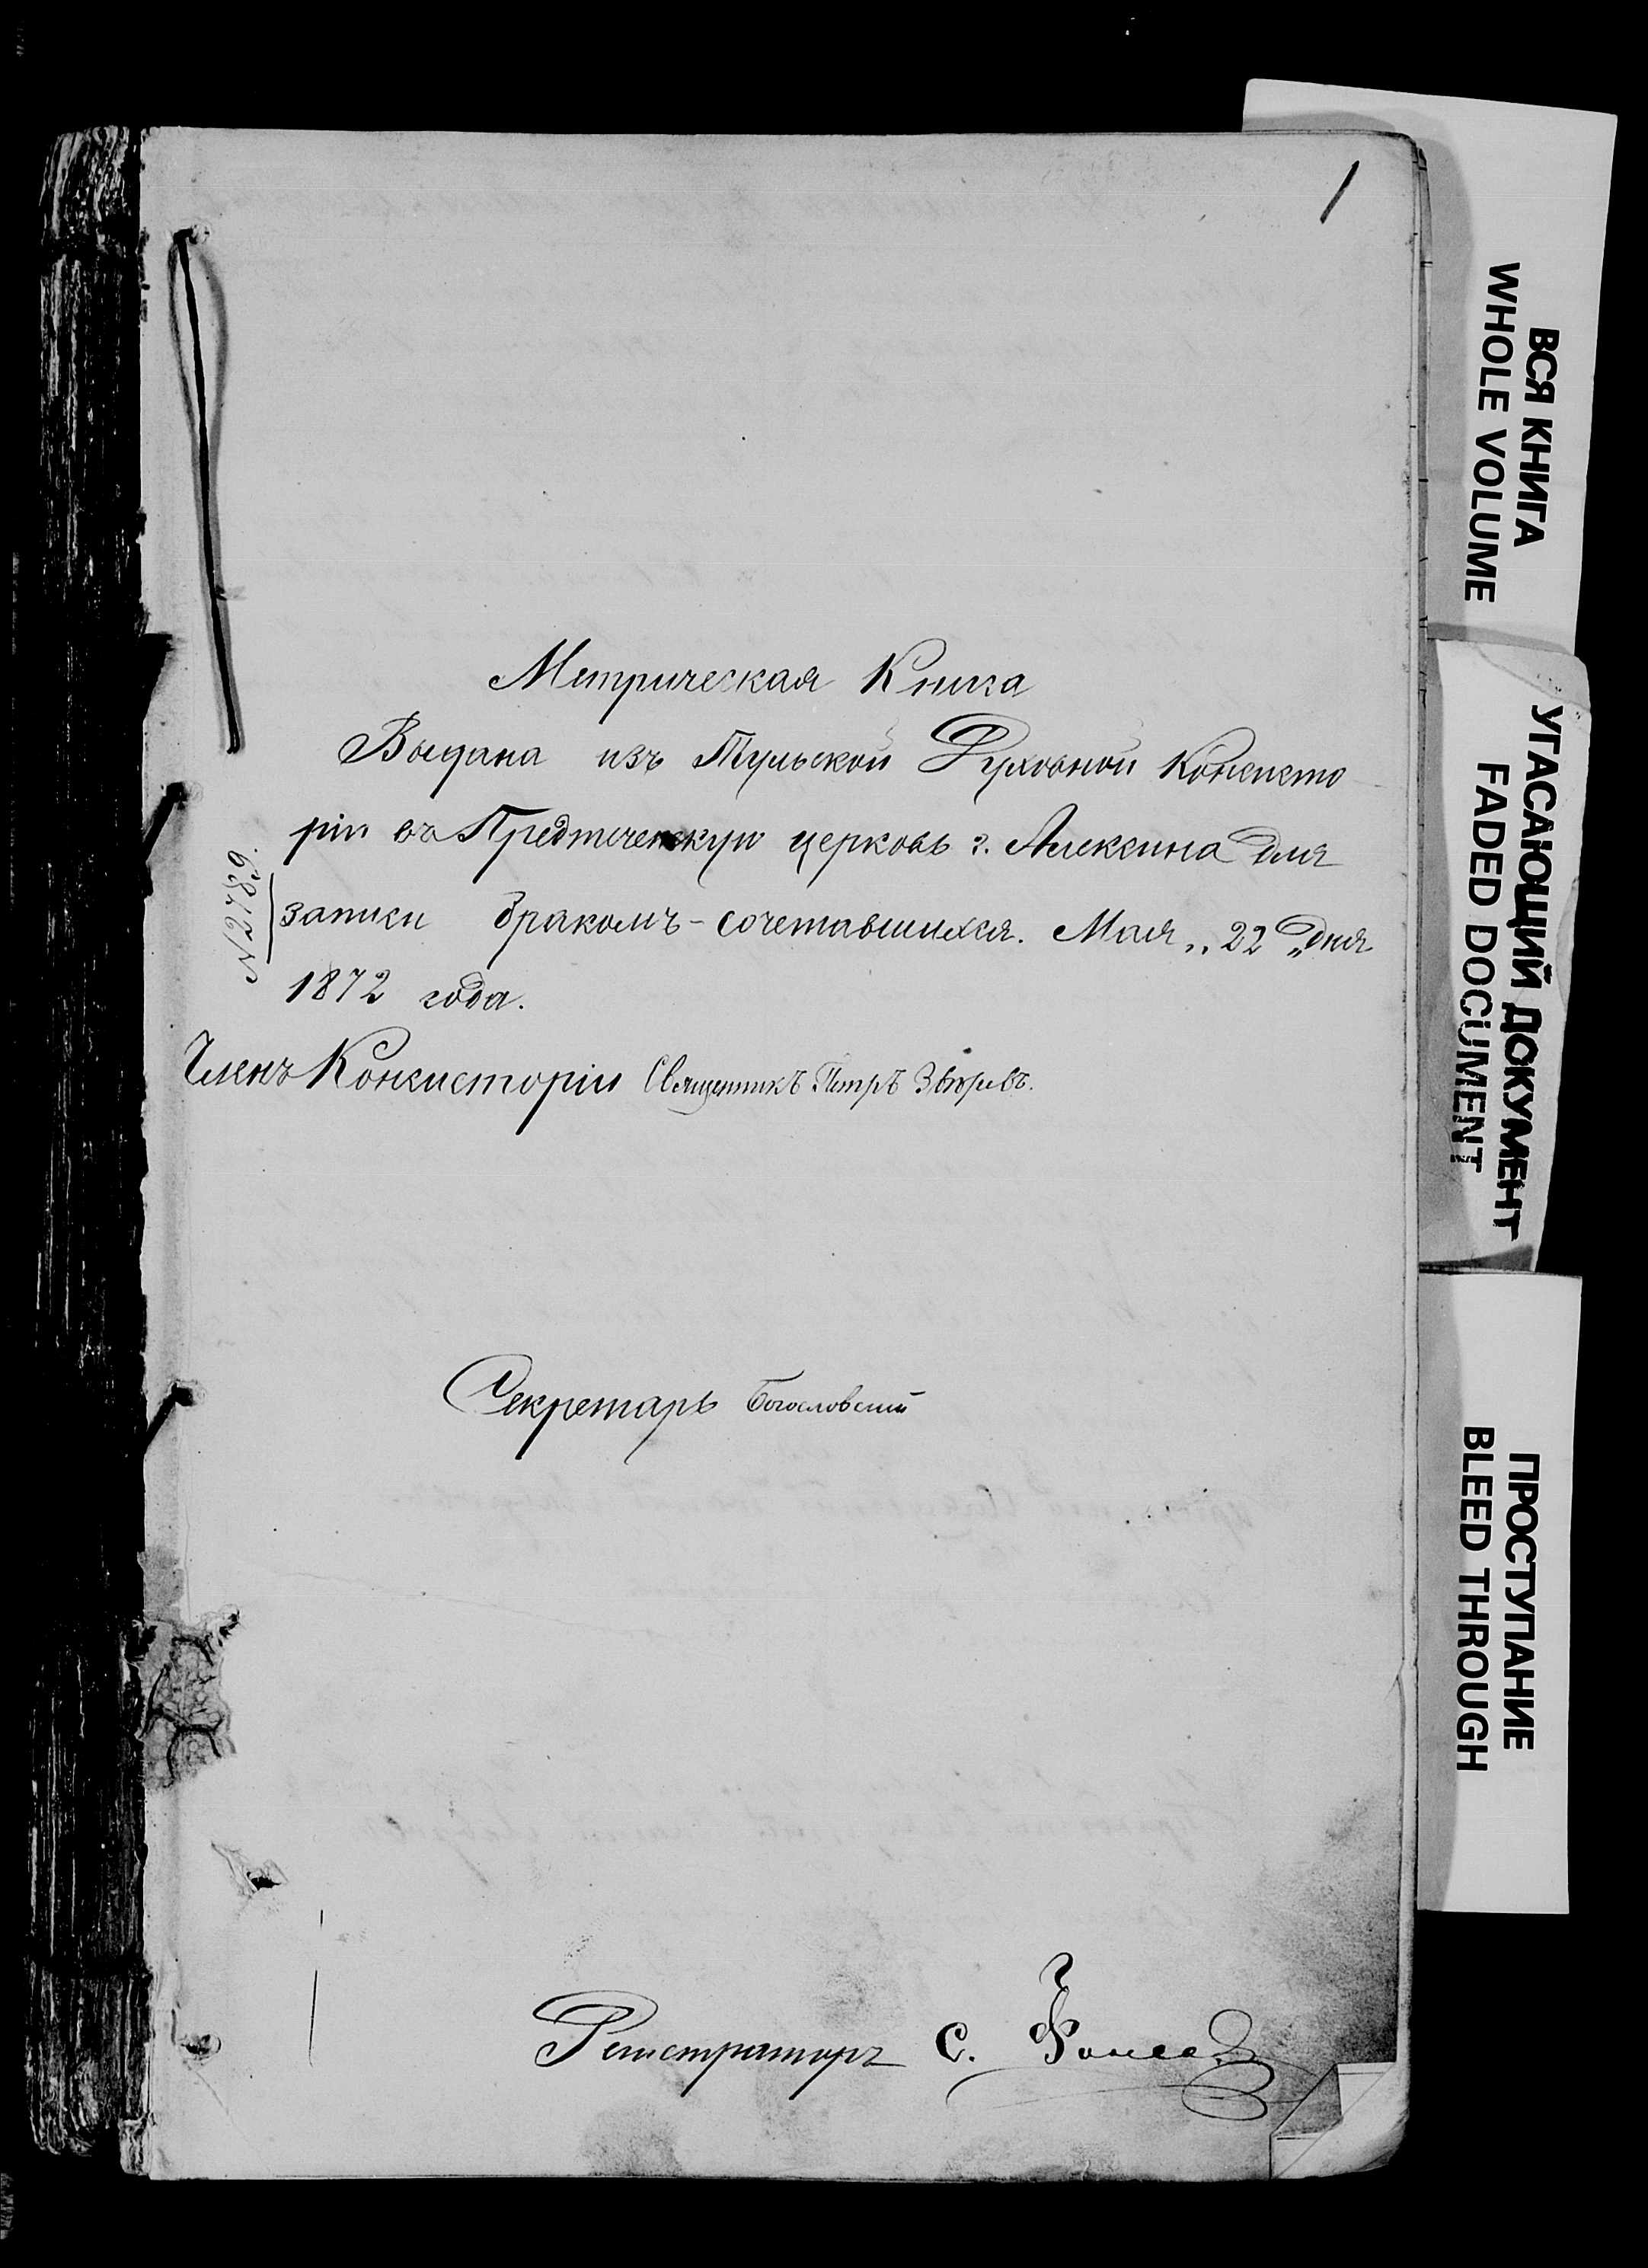 1
Метрическая Книга
Выдана изъ Тульской Духовной Консисто
ріи въ Предтеченскую церковь г. Алексина для
записи бракомъ-сочетавшихся. Мая „22„ дня
1872 года.
№ 2789.
Членъ Консисторіи Священникъ Петръ Звѣревъ.
Секретарь Богословскій
Регистраторъ С.
ВСЯ КНИГА
WHOLE VOLUME
УГАСАЮЩИЙ ДОКУМЕНТ
FADED DOCUMENT
ПРОСТУПАНИЕ
BLEED THROUGH